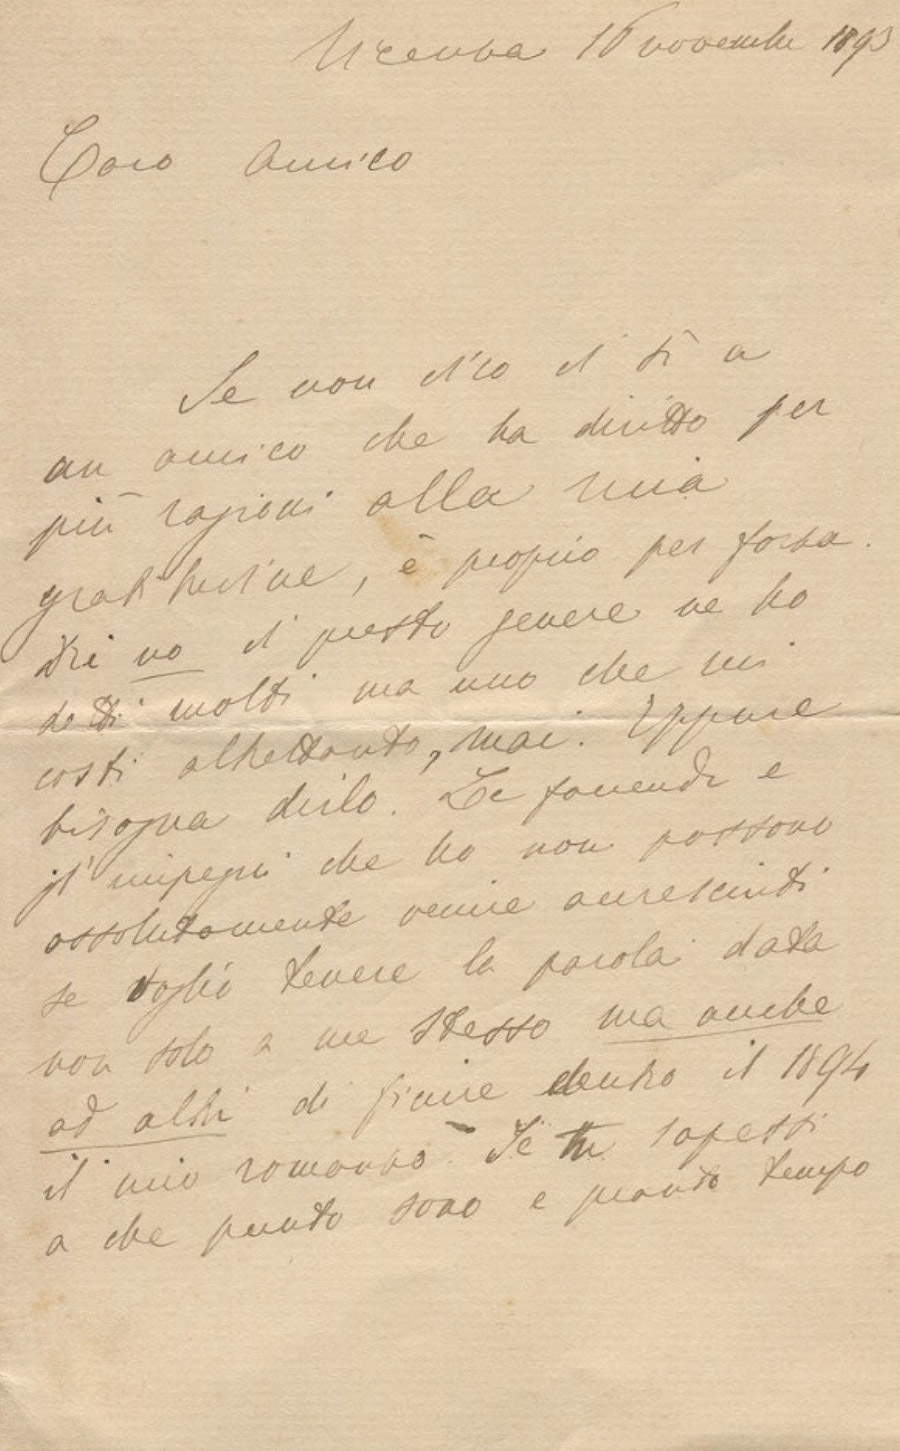 Vicenza 16 novembre 1893
Caro Amico
Se non dico di sì a
un amico che ha diritto per
più ragioni alla mia
gratitudine, è proprio per forza.
Dei no di questo genere ne ho
detti molti ma uno che mi
costi altrettanto, mai. Eppure
bisogna dirlo. Le faccende e
gl'impegni che ho non possono
assolutamente venire accresciuti
se voglio tenere la parola data
non solo a me stesso ma anche
ad altri di finire dentro il 1894
il mio romanzo. Se tu sapessi
a che punto sono e quanto tempo